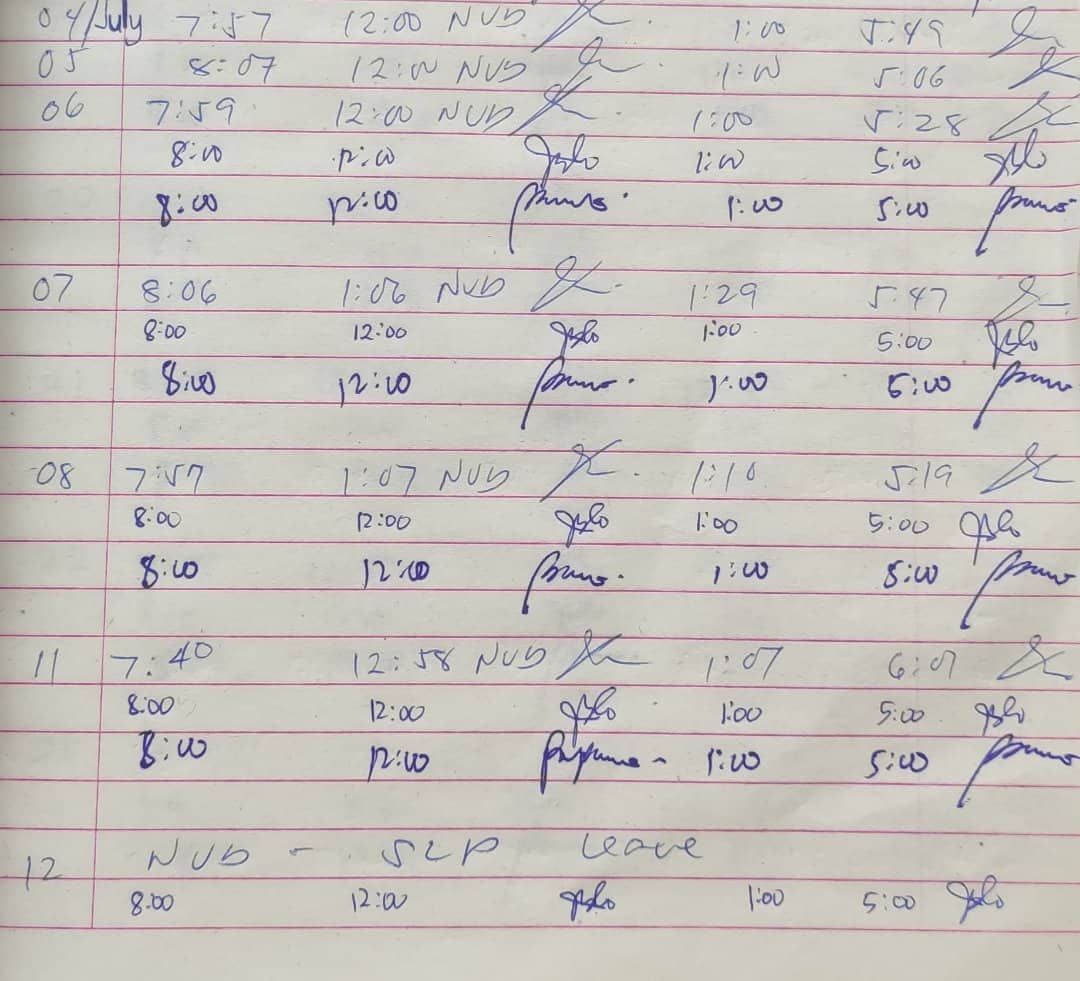 04/July 7:57 12:00 NVD 1:00 5:49
05 8:07 12:00 NVD 1:00 5:06
06 7:59 12:00 NVD 1:00 5:28
8:00 12:00 1:00 5:00
8:00 12:00 1:00 5:00
07 8:06 1:06 NVD 1:29 5:47
8:00 12:00 1:00 5:00
8:00 12:00 1:00 5:00
08 7:57 1:07 NVD 1:10 5:19
8:00 12:00 1:00 5:00
8:00 12:00 1:00 5:00
11 7:40 12:58 NVD 1:07 6:07
8:00 12:00 1:00 5:00
8:00 12:00 1:00 5:00
12 NVD - SLP leave
8:00 12:00 1:00 5:00